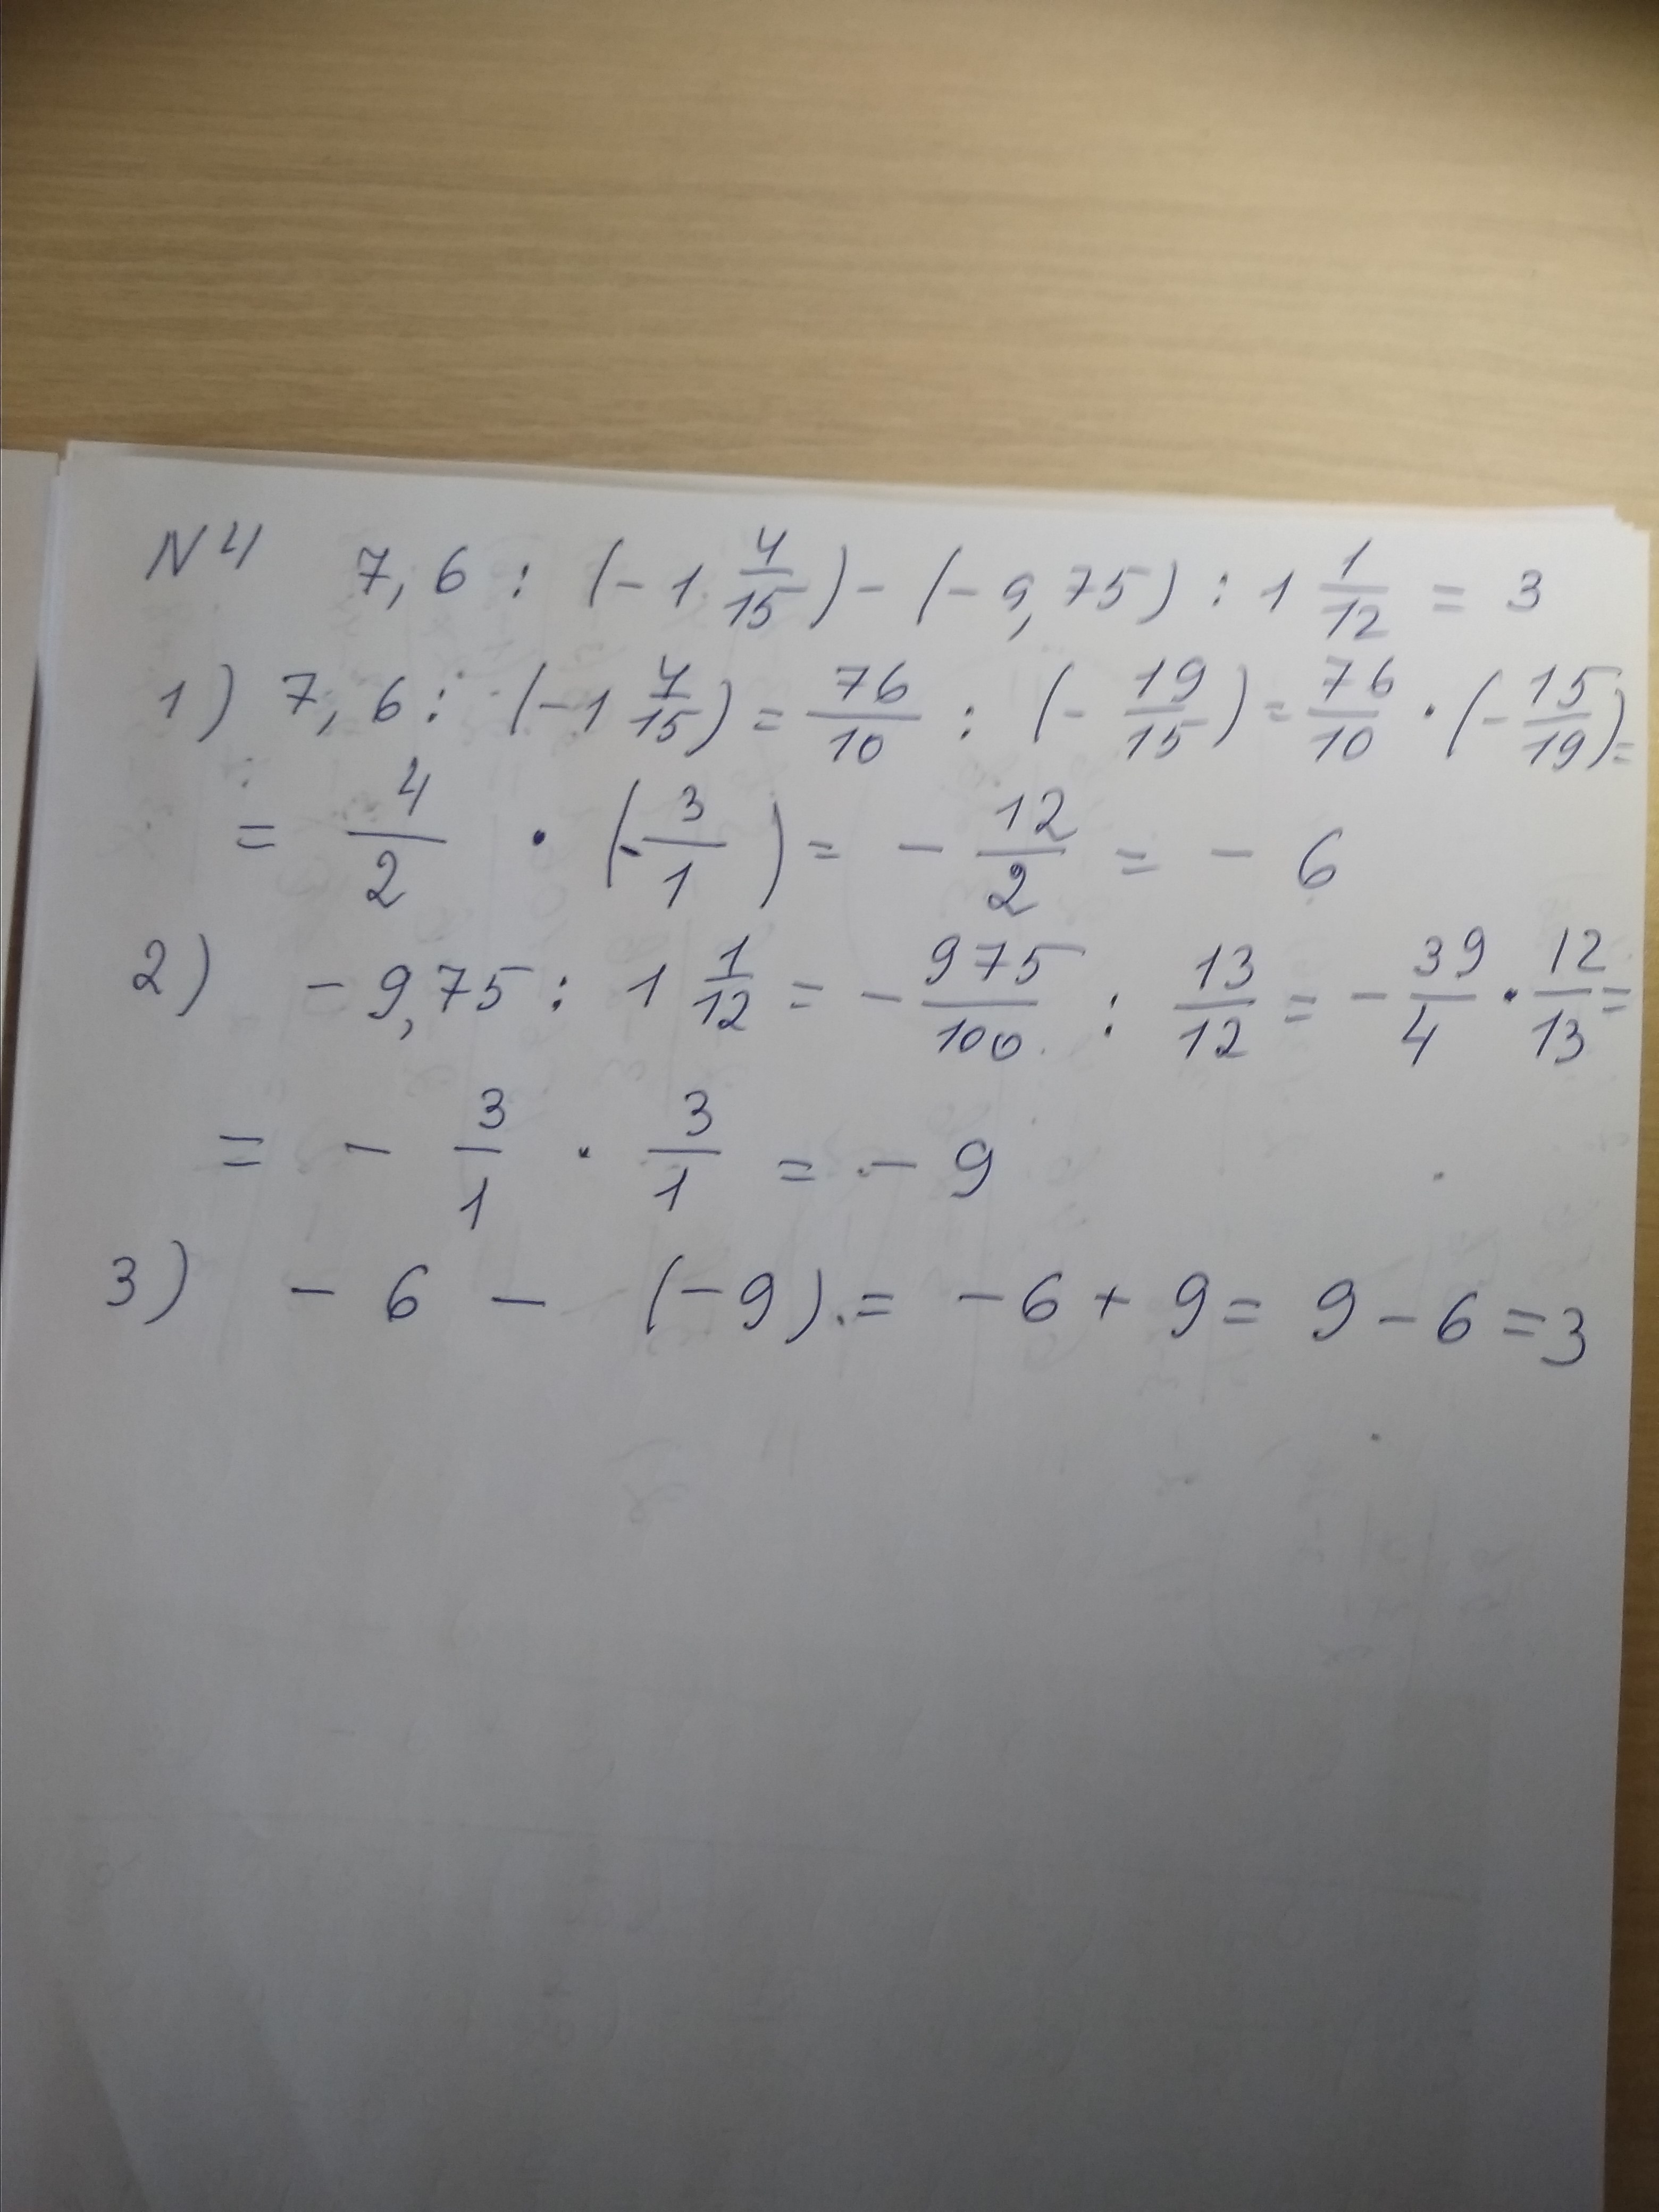 N 4 7,6 : (-1 4/15) - (-9,75) : 1 1/12 = 3
1) 7,6 : (-1 4/15) = 76/10 : (- 19/15) = 76/10 · (- 15/19) =
= 4/2 · (- 3/1) = - 12/2 = - 6
2) - 9,75 : 1 1/12 = - 975/100 : 13/12 = - 39/4 · 12/13 =
= - 3/1 · 3/1 = - 9
3) - 6 - (-9) = -6 + 9 = 9 - 6 = 3